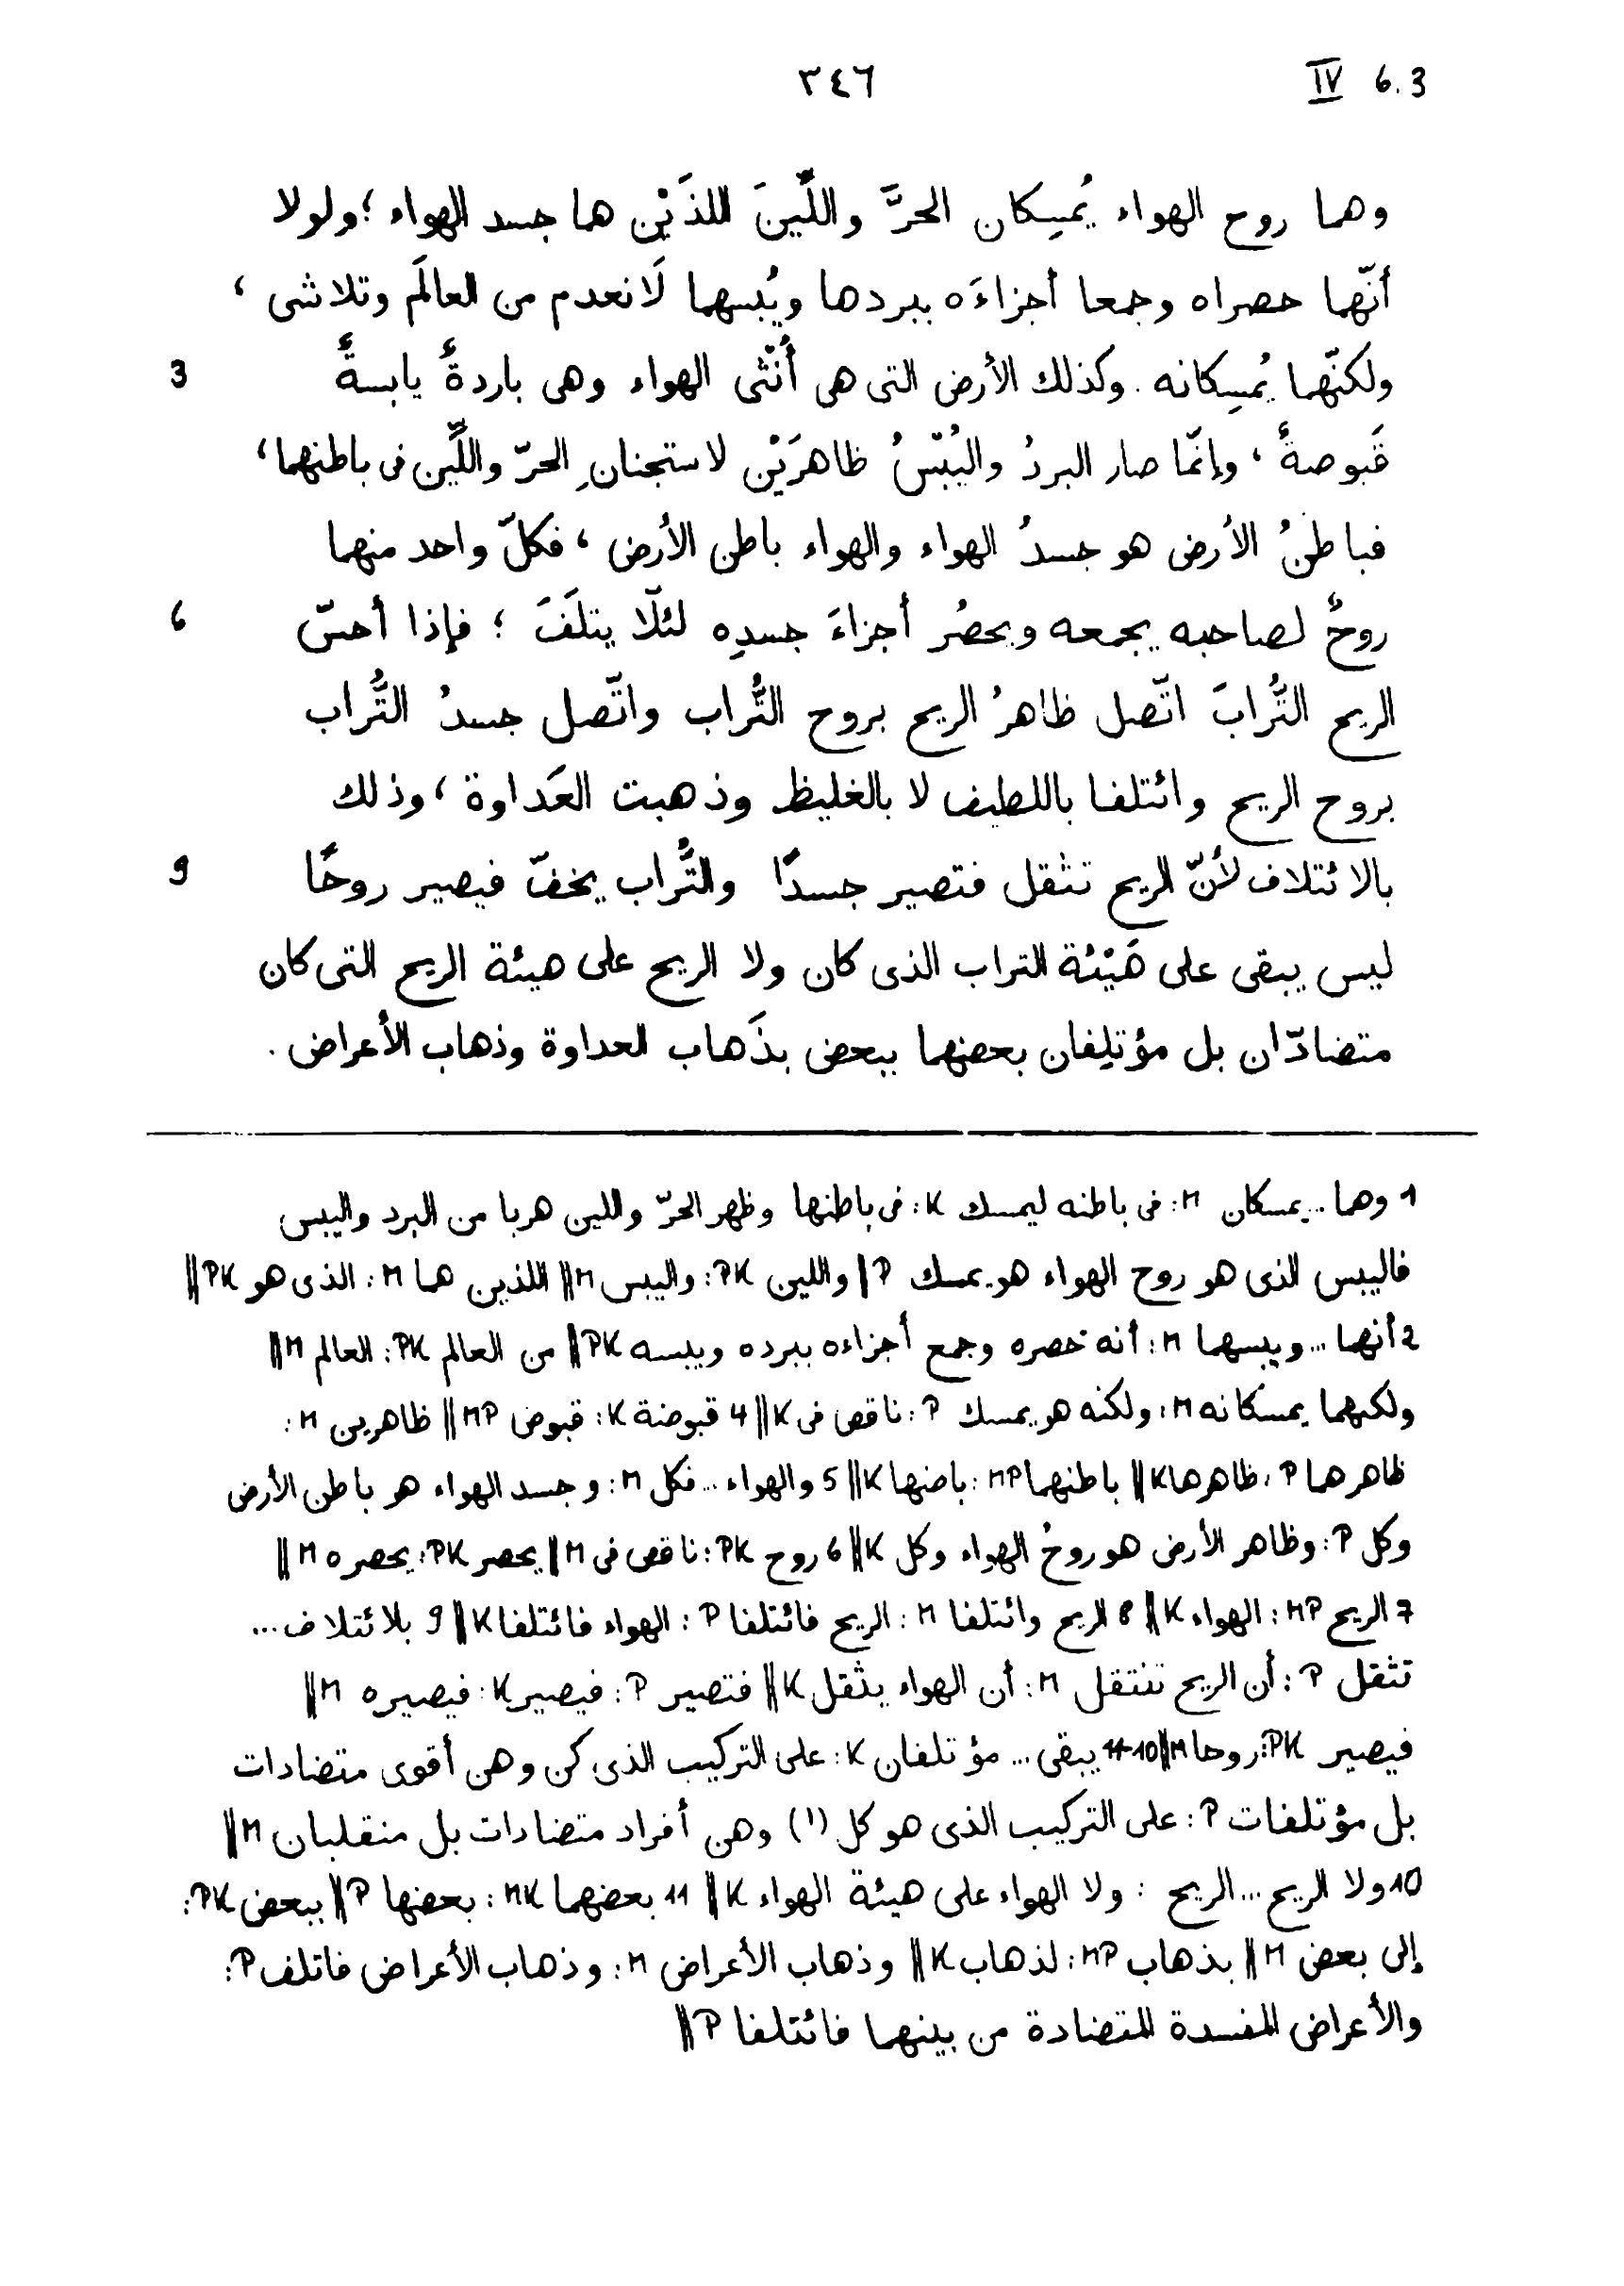 ٣٤٦ IV 6.3
وهما روح الهواء يُمسِكان الحرَّ واللِّينَ اللذَيْن هما جسد الهواء ؛ ولولا
أنّهما حصراه وجمعا أجزاءَه ببردهما ويُبسهما لَانعدم من العالَم وتلاشى ،
ولكنّهما يُمسِكانه . وكذلك الأرض التى هى أُنْثى الهواء وهى باردةٌ يابسةٌ 3
قَبوصةٌ ، وإنّما صار البردُ واليُبْسُ ظاهرَيْن لاستجنانِ الحرّ واللِّين فى باطنهما ،
فباطنُ الأرض هو جسدُ الهواء والهواء باطن الأرض ، فكلّ واحد منهما
روحٌ لصاحبه يجمعه ويحصُر أجزاءَ جسدِه لئلّا يتلَفَ ؛ فإذا أحسّ 6
الريح التُّرابَ اتّصل ظاهرُ الريح بروح التُّراب واتّصل جسدُ التُّراب
بروح الريح وائتلفا باللطيف لا بالغليظ وذهبت العَداوة ، وذلك
بالائتلاف لأنّ الريح تثقل فتصير جسدًا والتُّراب يخفّ فيصير روحًا 9
ليس يبقى على هَيْئة التراب الذى كان ولا الريح على هيئة الريح التى كان
متضادّان بل مؤتلِفان بعضهما ببعض بذَهاب العداوة وذهاب الأعراض .
1 وهما … يمسكان M : فى باطنه ليمسك K : فى باطنها وظهر الحرّ واللين هربا من البرد واليبس
فاليبس الذى هو روح الهواء هو يمسك P || واللين PK : واليبس M || اللذين هما M : الذى هو PK ||
2 أنهما … ويبسهما M : أنه حصره وجمع أجزاءه ببرده ويبسه PK || من العالم PK : العالم M ||
ولكنهما يمسكانه M : ولكنه هو يمسك P : ناقص فى K || 4 قبوضة K : قبوض MP || ظاهرين M :
ظاهرهما P ، ظاهرها K || باطنهما MP : باضنها K || 5 والهواء … فكل M : وجسد الهواء هو باطن الأرض
وكل P : وظاهر الأرض هو روحُ الهواء وكل K || 6 روح PK : ناقص فى M || يحصر PK : يحصره M ||
7 الريح MP : الهواء K || 8 الريح وائتلفا M : الريح فائتلفا P : الهواء فائتلفا K || 9 بلائتلاف …
تثقل P : أن الريح تنتقل M : أن الهواء يثقل K || فتصير P : فيصير K : فيصيره M ||
فيصير PK : روحا M || 10-11 يبقى … مؤتلفان K : على التركيب الذى كن وهن أقوى متضادات
بل مؤتلفات P : على التركيب الذى هو كل (١) وهن أفراد متضادات بل منقلبان M ||
10 ولا الريح … الريح : ولا الهواء على هيئة الهواء K || 11 بعضهما MK : بعضها P || ببعض PK :
إلى بعض M || بذهاب MP : لذهاب K || وذهاب الأعراض M : وذهاب الأعراض فاتلف P :
والأعراض المفسدة المتضادة من بينهما فائتلفا P ||